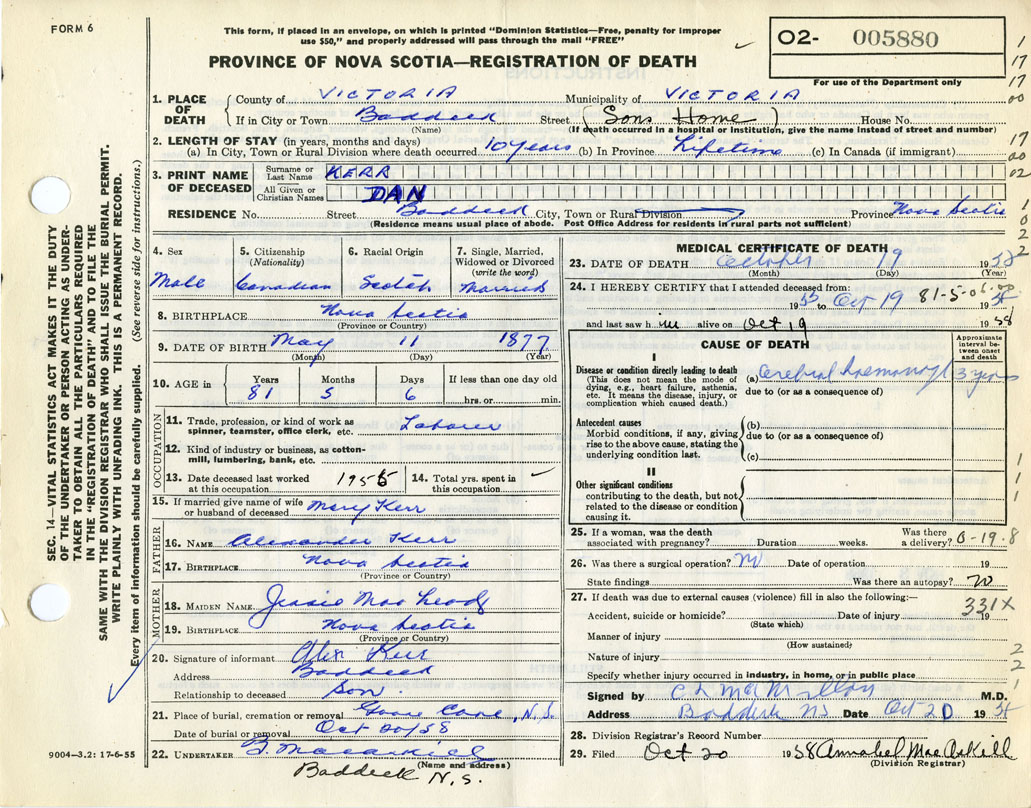 FORM 6
This form, if placed in an envelope, on which is printed "Dominion Statistics—Free, penalty for improper
use $50," and properly addressed will pass through the mail "FREE"
02- 005880
For use of the Department only
PROVINCE OF NOVA SCOTIA—REGISTRATION OF DEATH
1. PLACE OF DEATH County of VICTORIA Municipality of VICTORIA
If in City or Town Baddeck (Name) Street (Sons Home) House No.
(If death occurred in a hospital or institution, give the name instead of street and number)
2. LENGTH OF STAY (in years, months and days)
(a) In City, Town or Rural Division where death occurred 10 years (b) In Province Lifetime (c) In Canada (if immigrant)
3. PRINT NAME OF DECEASED Surname or Last Name KERR
All Given or Christian Names DAN
RESIDENCE No. Street Baddeck City, Town or Rural Division Province Nova Scotia
(Residence means usual place of abode. Post Office Address for residents in rural parts not sufficient)
4. Sex Male
5. Citizenship (Nationality) Canadian
6. Racial Origin Scotch
7. Single, Married, Widowed or Divorced (write the word) Married
8. BIRTHPLACE Nova Scotia
(Province or Country)
9. DATE OF BIRTH May 11 1877
(Month) (Day) (Year)
10. AGE in Years 81 Months 5 Days 6 If less than one day old hrs. or min.
OCCUPATION
11. Trade, profession, or kind of work as spinner, teamster, office clerk, etc. Laborer
12. Kind of industry or business, as cotton-mill, lumbering, bank, etc.
13. Date deceased last worked at this occupation 1955
14. Total yrs. spent in this occupation
15. If married give name of wife or husband of deceased Mary Kerr
FATHER
16. NAME Alexander Kerr
17. BIRTHPLACE Nova Scotia
(Province or Country)
MOTHER
18. MAIDEN NAME Jessie Mac Leod
19. BIRTHPLACE Nova Scotia
(Province or Country)
20. Signature of informant Alex Kerr
Address Baddeck
Relationship to deceased Son.
21. Place of burial, cremation or removal Goose Cove, N.S.
Date of burial or removal Oct 20/58
22. UNDERTAKER
(Name and address)
Baddeck N.S.
MEDICAL CERTIFICATE OF DEATH
23. DATE OF DEATH October 19 19
(Month) (Day) (Year)
24. I HEREBY CERTIFY that I attended deceased from:
1955 to Oct 19 19
81-5-
and last saw h im alive on Oct 19 1958
CAUSE OF DEATH
Approximate interval between onset and death
I
Disease or condition directly leading to death
(This does not mean the mode of dying, e.g., heart failure, asthenia, etc. It means the disease, injury, or complication which caused death.)
(a) Cerebral 3 years
due to (or as a consequence of)
Antecedent causes
Morbid conditions, if any, giving rise to the above cause, stating the underlying condition last.
(b)
due to (or as a consequence of)
(c)
II
Other significant conditions
contributing to the death, but not related to the disease or condition causing it.
25. If a woman, was the death associated with pregnancy? Duration weeks. Was there a delivery? 0-19-8
26. Was there a surgical operation? Date of operation 19
State findings Was there an autopsy?
27. If death was due to external causes (violence) fill in also the following:—
331X
Accident, suicide or homicide? Date of injury 19
(State which)
Manner of injury
(How sustained)
Nature of injury
Specify whether injury occurred in industry, in home, or in public place
Signed by C L MacMillan M.D.
Address Baddeck NS Date Oct 20 19
28. Division Registrar's Record Number
29. Filed Oct 20 1958 Annabel Mac Askill
(Division Registrar)
9004—3.2: 17-6-55
SEC. 14—VITAL STATISTICS ACT MAKES IT THE DUTY
OF THE UNDERTAKER OR PERSON ACTING AS UNDER-
TAKER TO OBTAIN ALL THE PARTICULARS REQUIRED
IN THE "REGISTRATION OF DEATH" AND TO FILE THE
SAME WITH THE DIVISION REGISTRAR WHO SHALL ISSUE THE BURIAL PERMIT.
WRITE PLAINLY WITH UNFADING INK. THIS IS A PERMANENT RECORD.
Every item of information should be carefully supplied. (See reverse side for instructions.)